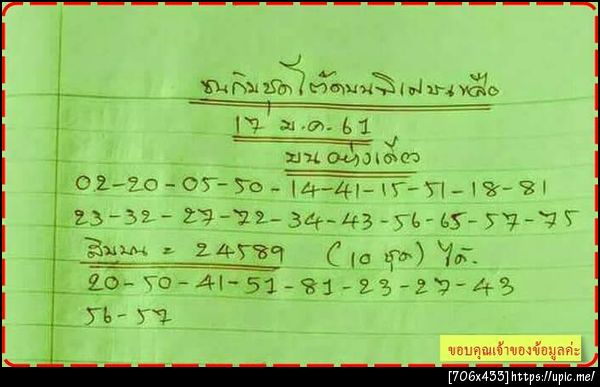 ชนกับชุดโต๊ดบนพิเศษเหลือ
17 ม.ค. 61
บนอย่างเดียว
02-20-05-50-14-41-15-51-18-81
23-32-27-72-34-43-56-65-57-75
สิบบน = 24589 (10 ชุด) ได้.
20-50-41-51-81-23-27-43
56-57
ขอบคุณเจ้าของข้อมูลค่ะ
[706x433]https://upic.me/